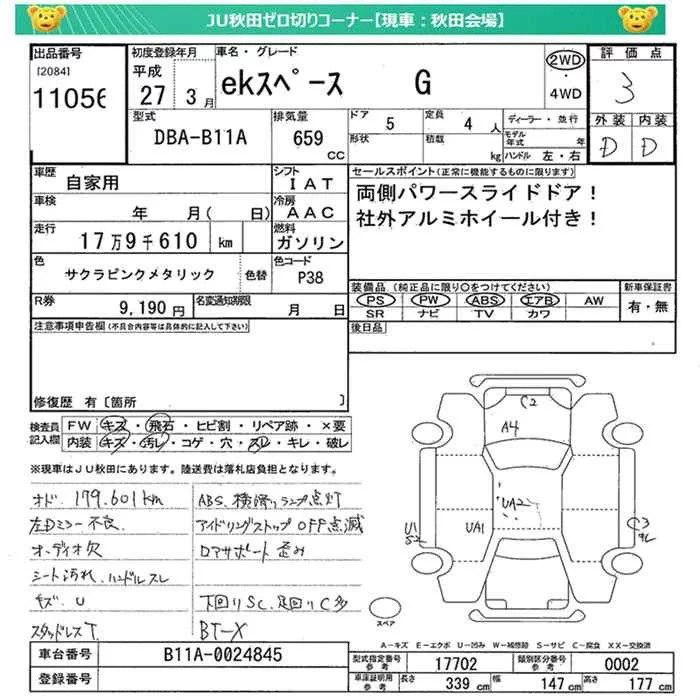 JU秋田ゼロ切りコーナー【現車：秋田会場】
出品番号
[2084]
11056
初度登録年月
平成
27 3月
車名・グレード
ekスペース G
2WD
・
4WD
評価点
3
外装 内装
D D
型式
DBA-B11A
排気量
659
CC
ドア
5
定員
4 人
形状
積載
kg
ディーラー・並行
モデル
年式 年
ハンドル 左・右
車歴
自家用
シフト
IAT
車検
年 月( 日)
冷房
AAC
走行
17万9千610 km
燃料
ガソリン
色
サクラピンクメタリック
色替
色コード
P38
R券
9,190円
名変通知期限
月 日
セールスポイント(正常に機能するものに限ります)
両側パワースライドドア！
社外アルミホイール付き！
装備品 (純正品に限り○をつけてください)
PS PW ABS エアB AW
SR ナビ TV カワ
新車保証書
有・無
後日品
注意事項申告欄(不具合内容等は具体的に記入して下さい)
修復歴 有〔箇所 〕
検査員
記入欄
FW キズ・飛石・ヒビ割・リペア跡・×要
内装 キズ・汚レ・コゲ・穴・スレ・キレ・破レ
※現車はJU秋田にあります。陸送費は落札店負担となります。
オド. 179.601km
左Dミラー不良.
オーディオ欠
シート汚れ.ハンドルスレ
キズ. U
スタッドレスT.
ABS、横滑りランプ点灯
アイドリングストップOFF点滅
ロアサポート歪み
下回りSC、足回りC多
BT-X
C2
A4
UA2
U1
S2
UA1
C3
スペア
A－キズ E－エクボ U－凹み W－補修跡 S－サビ C－腐食 XX－交換済
車台番号
B11A-0024845
登録番号
型式指定番号
参考
17702
類別区分番号
参考
0002
車庫証明用
参考
長さ
339 cm
幅
147 cm
高さ
177 cm